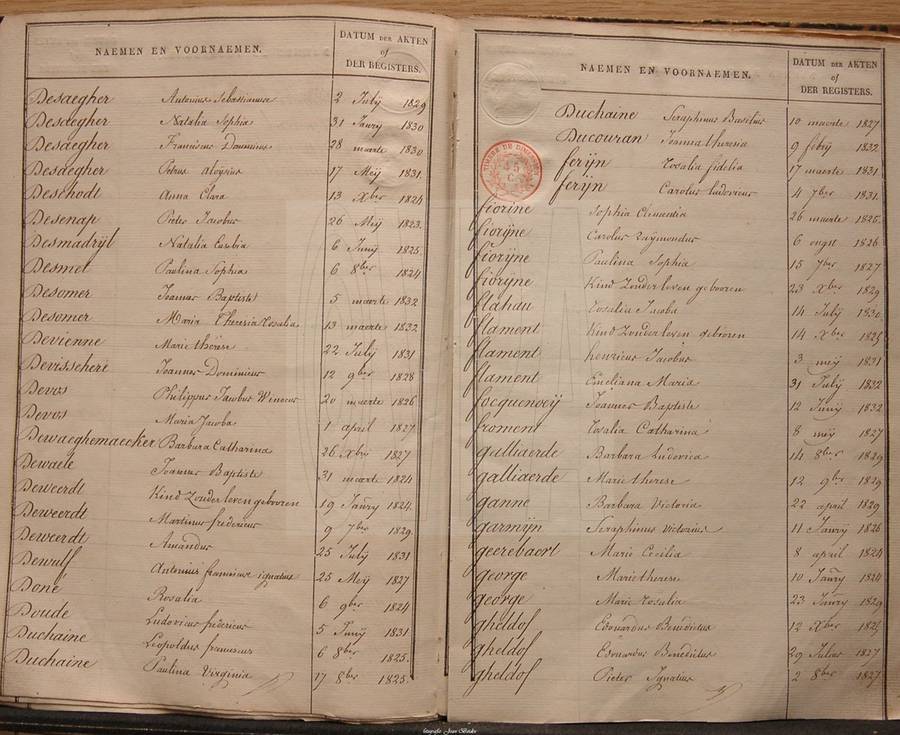 NAEMEN EN VOORNAEMEN. DATUM DER AKTEN
of
DER REGISTERS.
Desaegher Antonius Sebastianus 2 July 1829
Desaegher Natalia Sophia 31 Janry 1830
Desaegher Franciscus 28 maerte 1830
Desaegher Petrus aloysius 17 Meÿ 1831
Deschodt Anna Clara 13 Xber 1824
Desenap Pieter Jacobus 26 Meÿ 1823
Desmadrÿl Natalia 6 Junÿ 1825
Desmet Paulina Sophia 6 8ber 1824
Desomer Joannes Baptiste 5 maerte 1832
Desomer Maria Theresia Rosalia 13 maerte 1832
Devienne Marie thérèse 22 Julÿ 1831
Joannes Dominicus 12 9ber 1828
Devos Philippus Jacobus Winocus 20 maerte 1826
Devos Maria Jacoba 1 april 1827
Dewaeghemaecker Barbara Catharina 26 Xbre 1827
Dewaele Joannes Baptiste 31 maerte 1824
Deweerdt Kind Zonder leven geboren 19 Janry 1824
Deweerdt Martinus fredericus 9 7ber 1829
Deweerdt Amandus 25 Julÿ 1831
Dewulf Antonius franciscus ignatius 25 Meÿ 1827
Done Rosalia 6 9ber 1824
Doude Ludovicus fredericus 5 Junÿ 1831
Duchaine Leopoldus franciscus 6 8ber 1825
Duchaine Paulina Virginia 17 8ber 1825
NAEMEN EN VOORNAEMEN. DATUM DER AKTEN
of
DER REGISTERS.
Duchaine Seraphinus Basilius 10 maerte 1827
Ducouran Joanna theresia 9 febrÿ 1832
ferÿn Rosalia fidelia 17 maerte 1831
ferÿn Carolus Ludovicus 4 7ber 1831
fiorine Sophia Clementia 26 maerte 1825
fiorÿne Carolus Raÿmondus 6 ougst 1826
fiorÿne Paulina Sophia 15 7ber 1827
fiorÿne Kind Zonder leven geboren 23 Xber 1829
flahau Rosalia Jacoba 14 Julÿ 1830
flament Kind Zonder leven geboren 14 Xber 1825
flament henricus Jacobus 3 meÿ 1831
flament Emeliana Maria 31 Julÿ 1832
focquenoeÿ Joannes Baptiste 12 Junÿ 1832
froment Rosalia Catharina 8 meÿ 1827
galliaerde Barbara Ludovica 14 8ber 1829
galliaerde Marie therese 12 9ber 1829
ganne Barbara Victoria 22 april 1829
garmÿn Seraphinus Victorius 11 Janrÿ 1826
geerebaert Marie Cecilia 8 april 1824
george Marie therese 10 Janry 1824
george Marie Rosalia 23 Janry 1829
gheldof Edouardus Benedictus 12 Xber 1825
gheldof Edouardus Benedictus 29 Julius 1827
gheldof Pieter Ignatius 2 8ber 1827